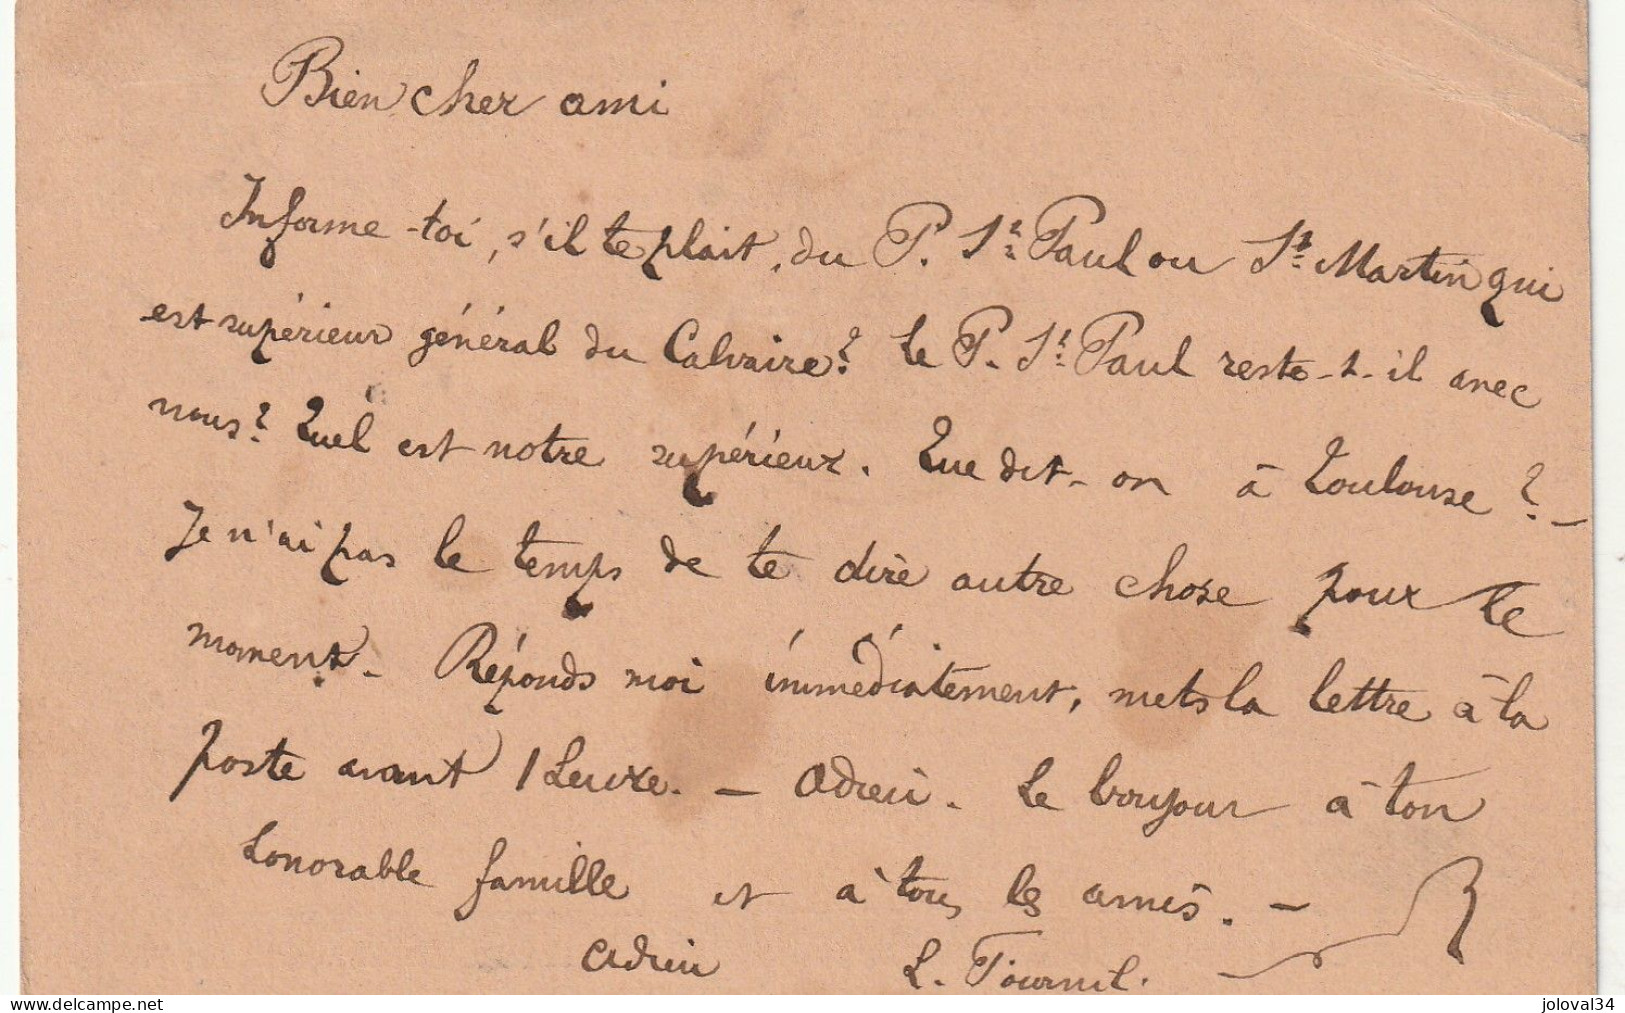 Bien cher ami
Informe-toi, s'il te plait, du P. St Paul ou St Martin qui
est supérieur général du Calvaire? Le P. St Paul reste-t-il avec
nous? Quel est notre supérieur. Que dit-on à Toulouse? —
Je n'ai pas le temps de te dire autre chose pour le
moment. Réponds moi immédiatement, mets la lettre à la
poste avant 1 heure. — Adieu. Le bonjour à ton
honorable famille et à tous les amis. —
Adieu L. Tournil.
joloval34